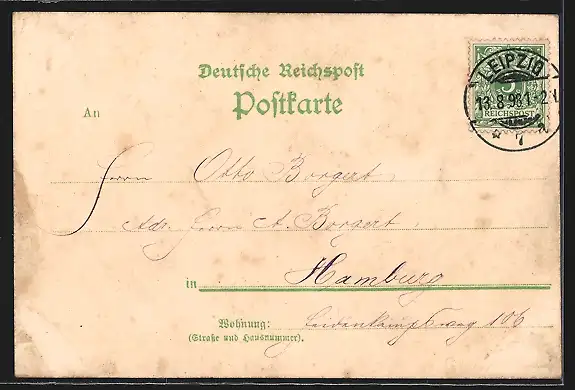 Deutsche Reichspost
Postkarte
LEIPZIG
13.8.98
7
5
REICHSPOST
An
Herrn Otto Borgert,
Adr. Herrn A. Borgert,
in Hamburg
Wohnung:
(Straße und Hausnummer).
106